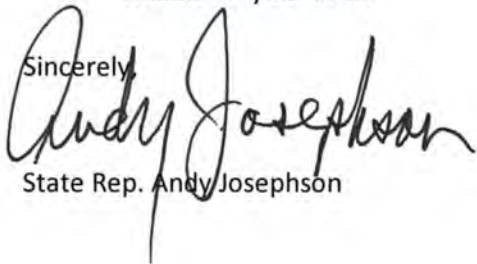 Sincerely,
Andy Josephson
State Rep. Andy Josephson